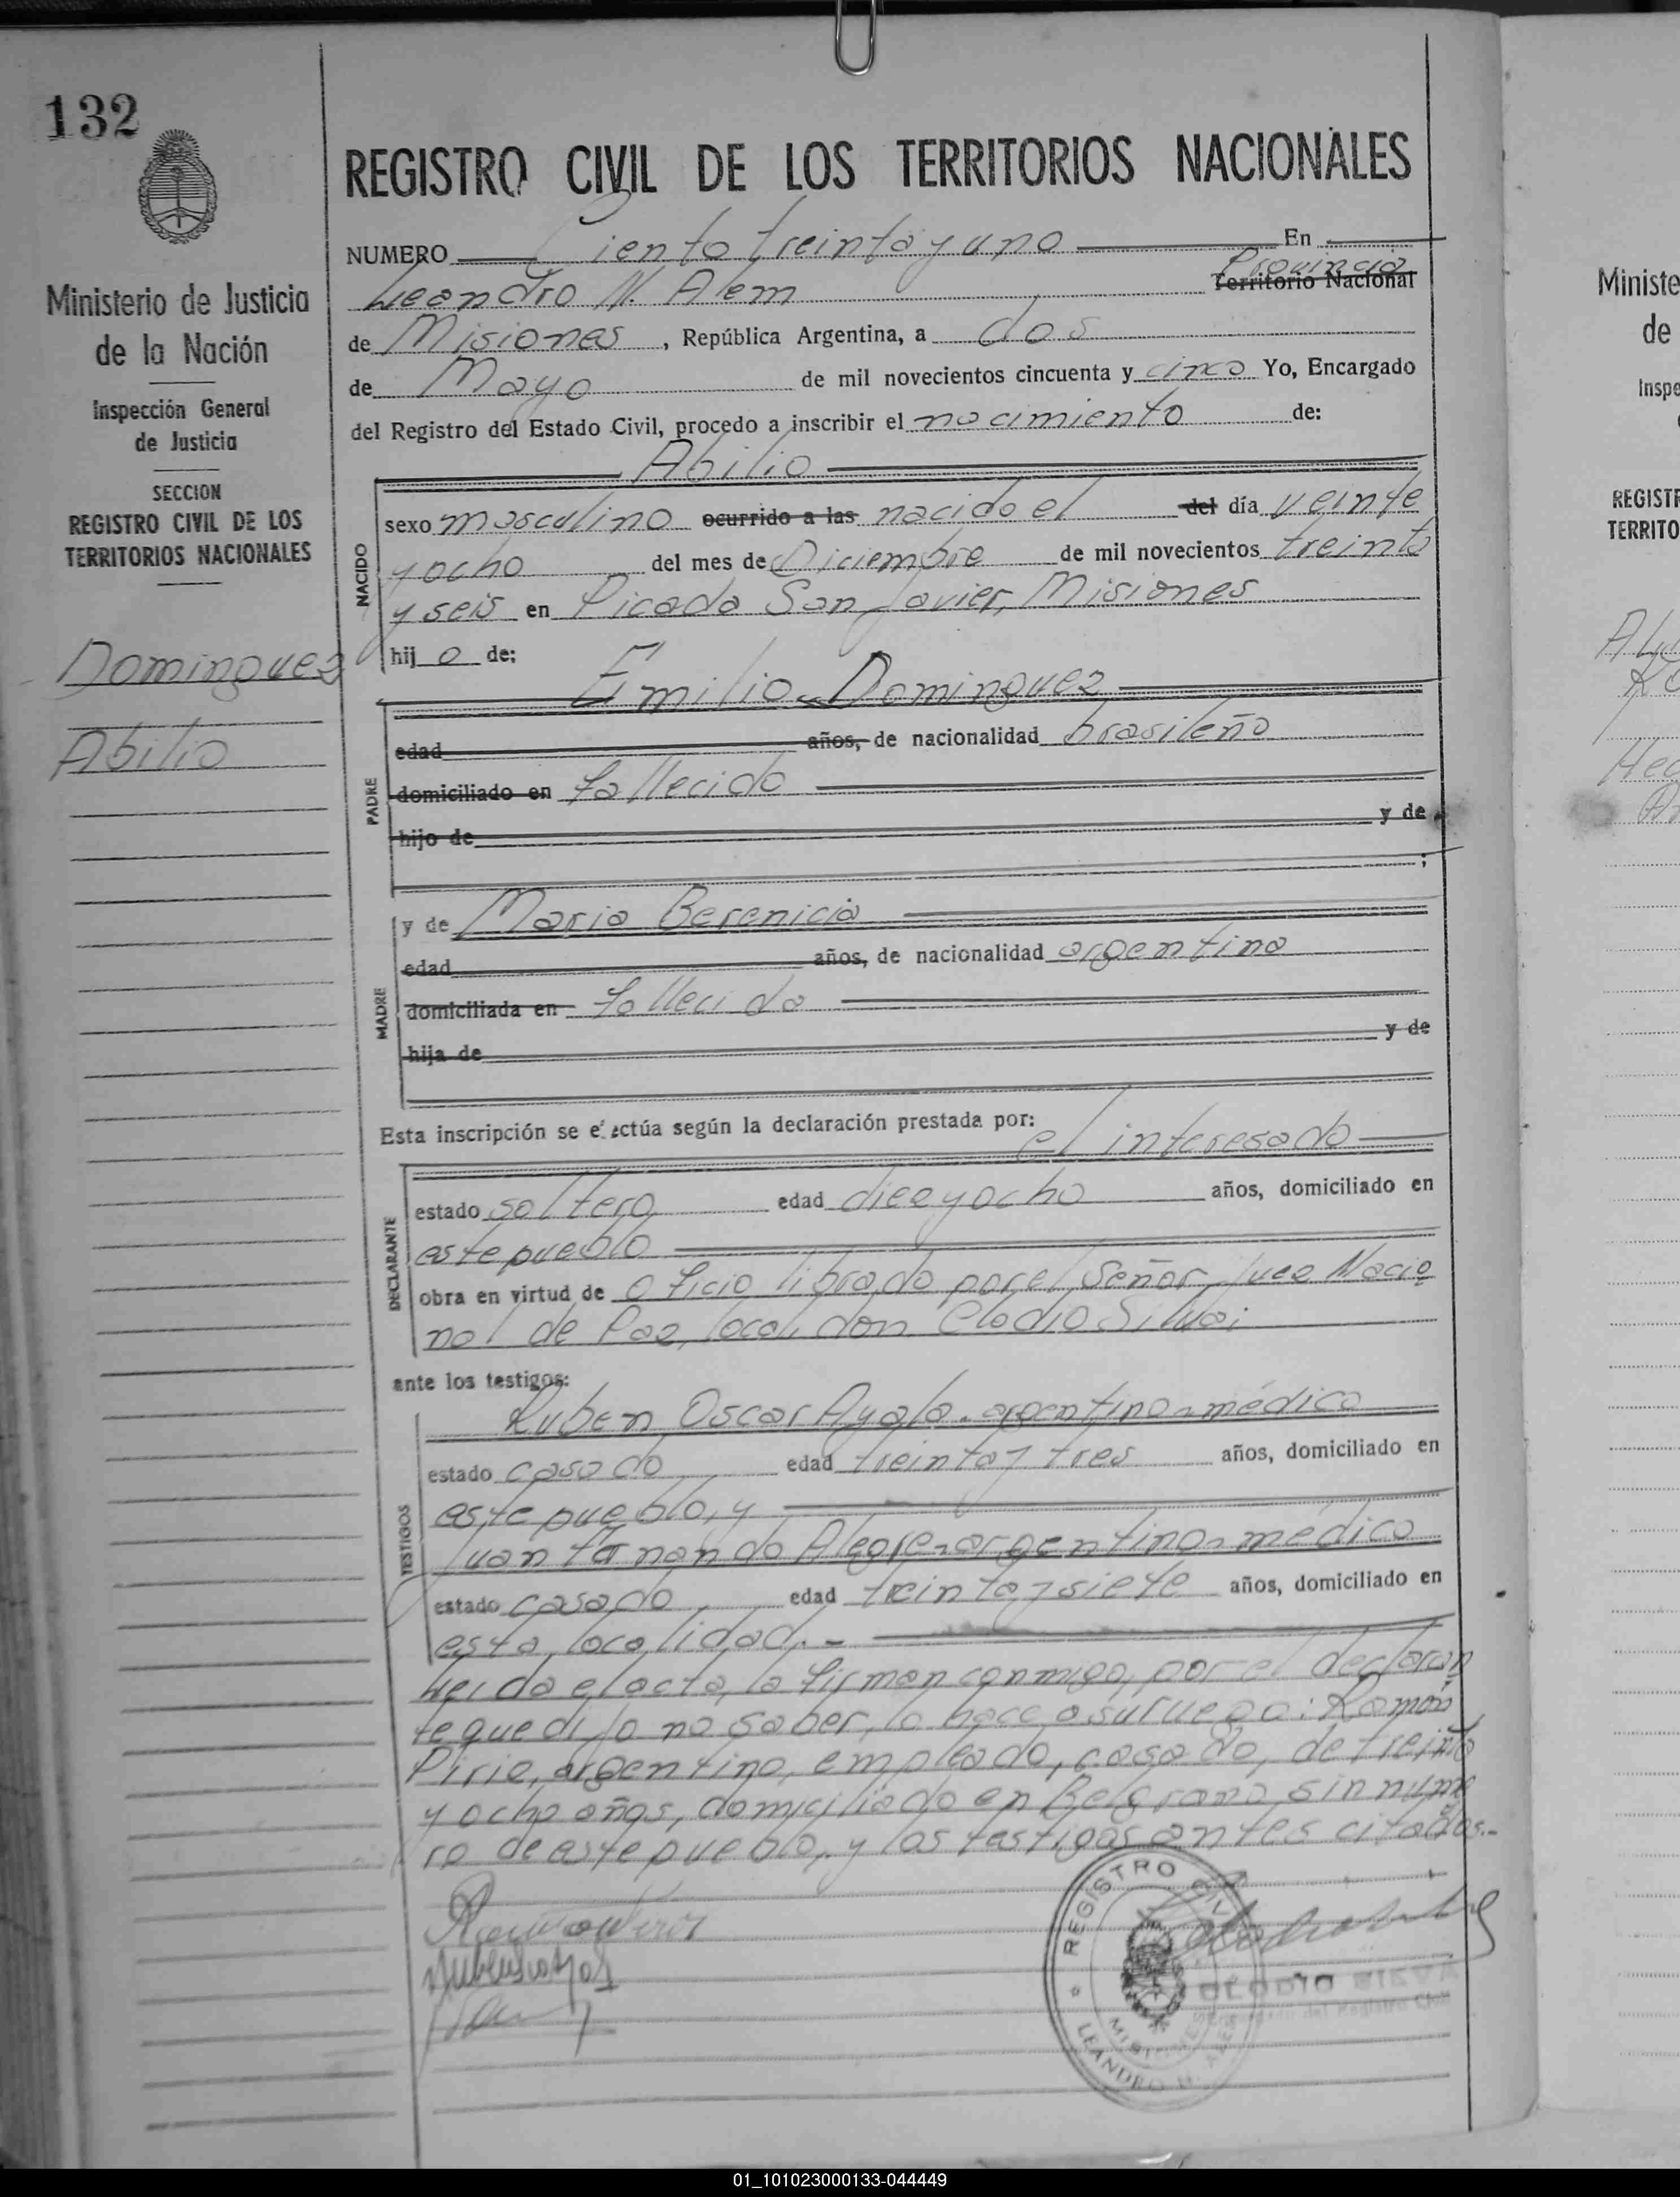 132
REGISTRO CIVIL DE LOS TERRITORIOS NACIONALES
Ministerio de Justicia
de la Nación
Inspección General
de Justicia
SECCION
REGISTRO CIVIL DE LOS
TERRITORIOS NACIONALES
Dominguez
Abilio
NUMERO Ciento treinta y uno En
Leandro N. Alem Provincia Territorio Nacional
de Misiones, República Argentina, a dos
de Mayo de mil novecientos cincuenta y cinco Yo, Encargado
del Registro del Estado Civil, procedo a inscribir el nacimiento de:
Abilio
NACIDO
sexo masculino ocurrido a las nacido el del día veinte
y ocho del mes de Diciembre de mil novecientos treinta
y seis en Picada San Javier, Misiones
hijo de;
Emilio Dominguez
PADRE
edad años, de nacionalidad brasileño
domiciliado en fallecido
hijo de y de
;
MADRE
y de Maria Berenicia
edad años, de nacionalidad argentina
domiciliada en fallecida
hija de y de
Esta inscripción se efectúa según la declaración prestada por:
el interesado
DECLARANTE
estado soltero edad diez y ocho años, domiciliado en
este pueblo
obra en virtud de oficio librado por el Señor Juez Nacio
nal de Paz, local, don Clodio Silva;
ante los testigos:
Ruben Oscar Ayala - argentino - médico
TESTIGOS
estado casado edad treinta y tres años, domiciliado en
este pueblo, y
Juan Fernando Alegre - argentino - médico
estado casado edad treinta y siete años, domiciliado en
esta localidad. -
Leida el acta, la firman conmigo, por el declaran
te que dijo no saber, lo hace a su ruego: Ramón
Pirie, argentino, empleado, casado, de treinta
y ocho años, domiciliado en Belgrano sin núme
ro de este pueblo, y los testigos antes citados.-
REGISTRO CIVIL
MISIONES
LEANDRO N. ALEM
CLODIO SILVA
del Registro Civil
Ministe
de
Inspe
REGISTR
TERRITO
01_101023000133-044449